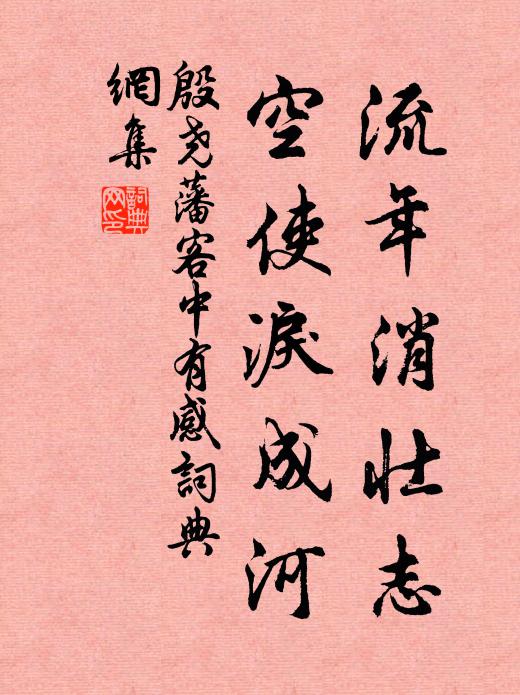 流年消壮志
空使淚成河
殷尧藩客中有感詞典
網集
詞典
网印